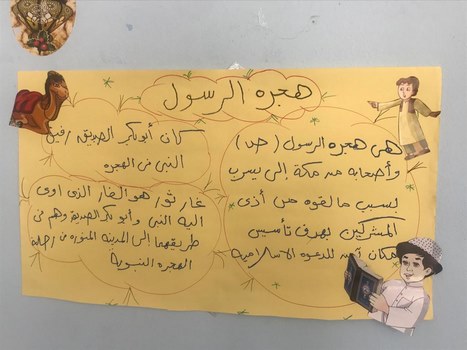 هجره الرسول
هي هجره الرسول (ص)
وأصحابه من مكة إلى يسرب
بسبب ما لقوه من أذى
المشركين بهدف تأسيس
مكان آمن للدعوه الاسلامية
كان أبوبكر الصديق رفيق
النبي في الهجره
غار ثور هو الغار الذي اوى
اليه النبي وأبوبكر الصديق وهم في
طريقهما إلى المدينه المنوره في رحلة
الهجره النبوية